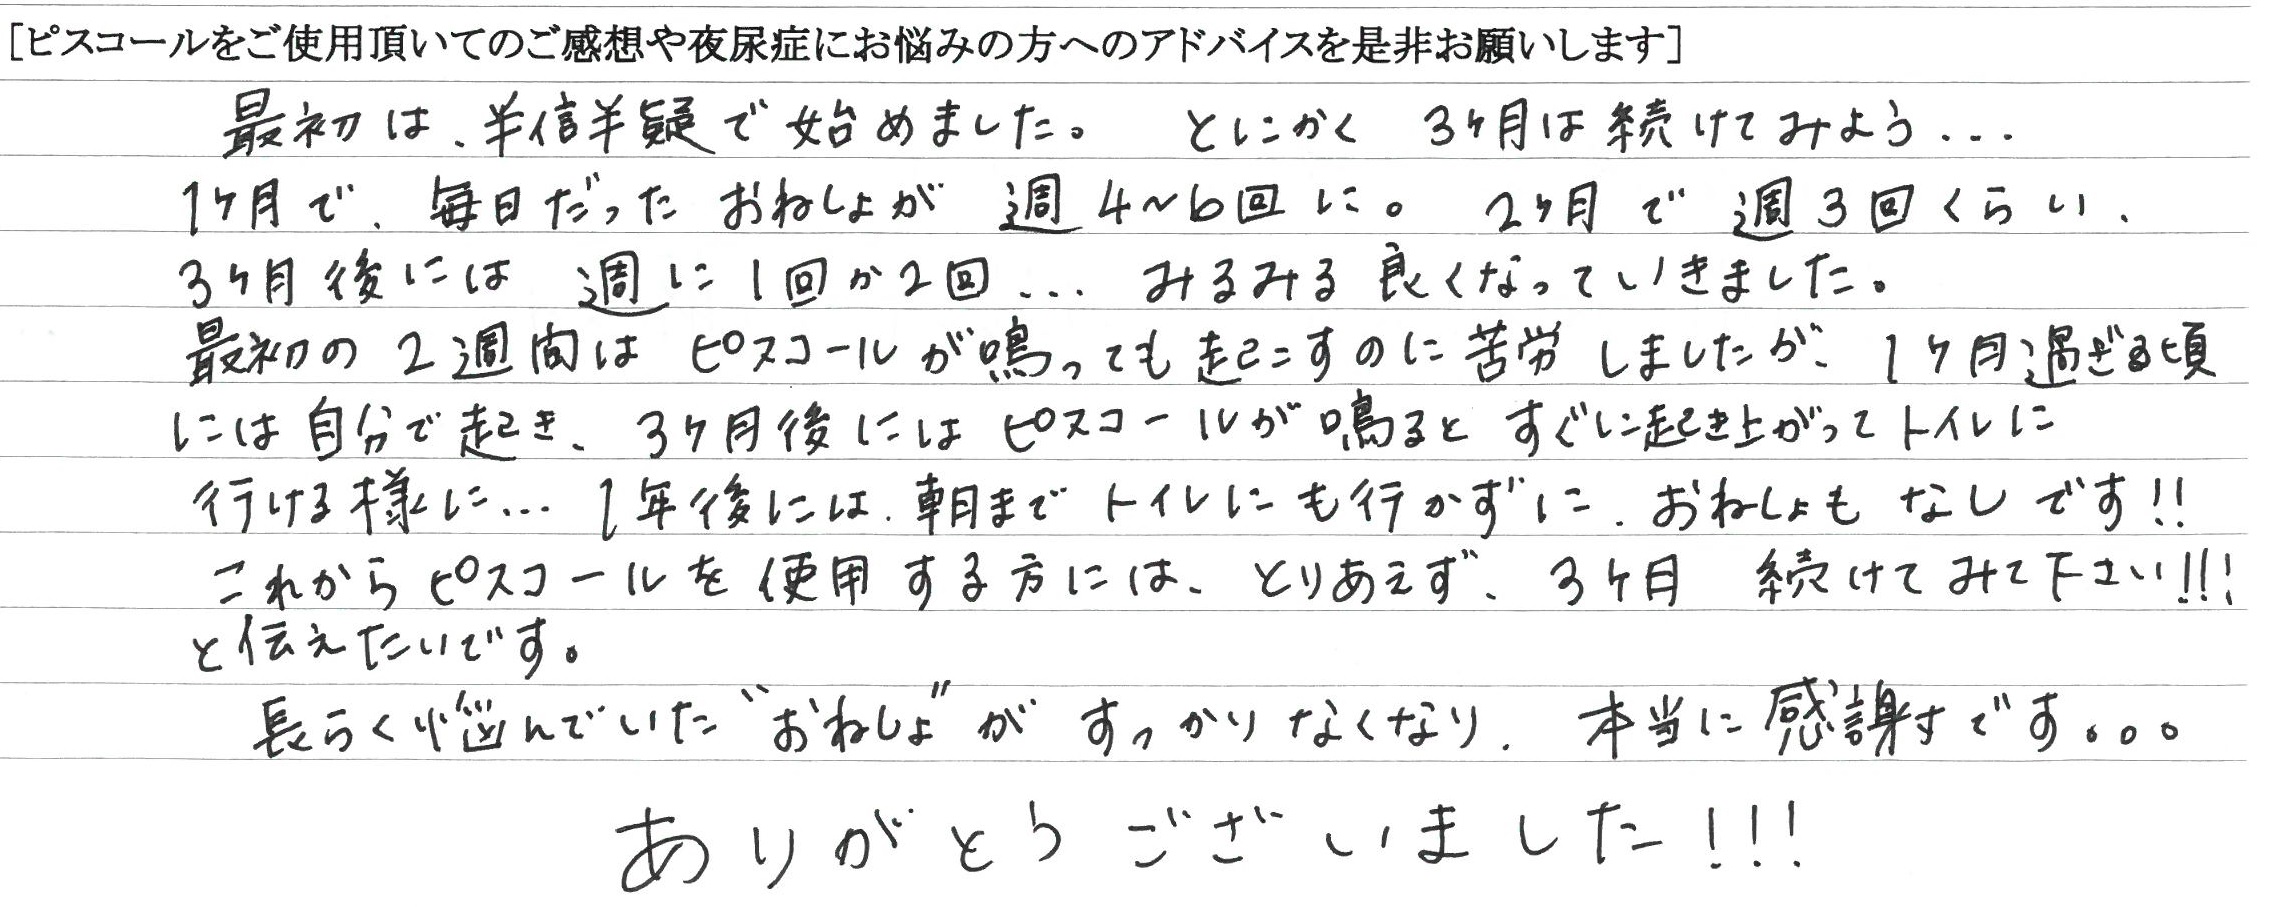 [ピスコールをご使用頂いてのご感想や夜尿症にお悩みの方へのアドバイスを是非お願いします]
最初は、半信半疑で始めました。 とにかく 3ヶ月は続けてみよう...
1ヶ月で、毎日だった おねしょが 週4~6回に。 2ヶ月で 週3回くらい、
3ヶ月後には 週に1回か2回... みるみる良くなっていきました。
最初の2週間は ピスコールが鳴っても起こすのに苦労しましたが、1ヶ月過ぎる頃
には自分で起き、3ヶ月後にはピスコールが鳴るとすぐに起き上がってトイレに
行ける様に... 1年後には、朝までトイレにも行かずに、おねしょもなしです!!
これからピスコールを使用する方には、とりあえず、3ヶ月 続けてみて下さい!!!
と伝えたいです。
長らく悩んでいた"おねしょ"がすっかりなくなり、本当に感謝です。。。
ありがとうございました!!!